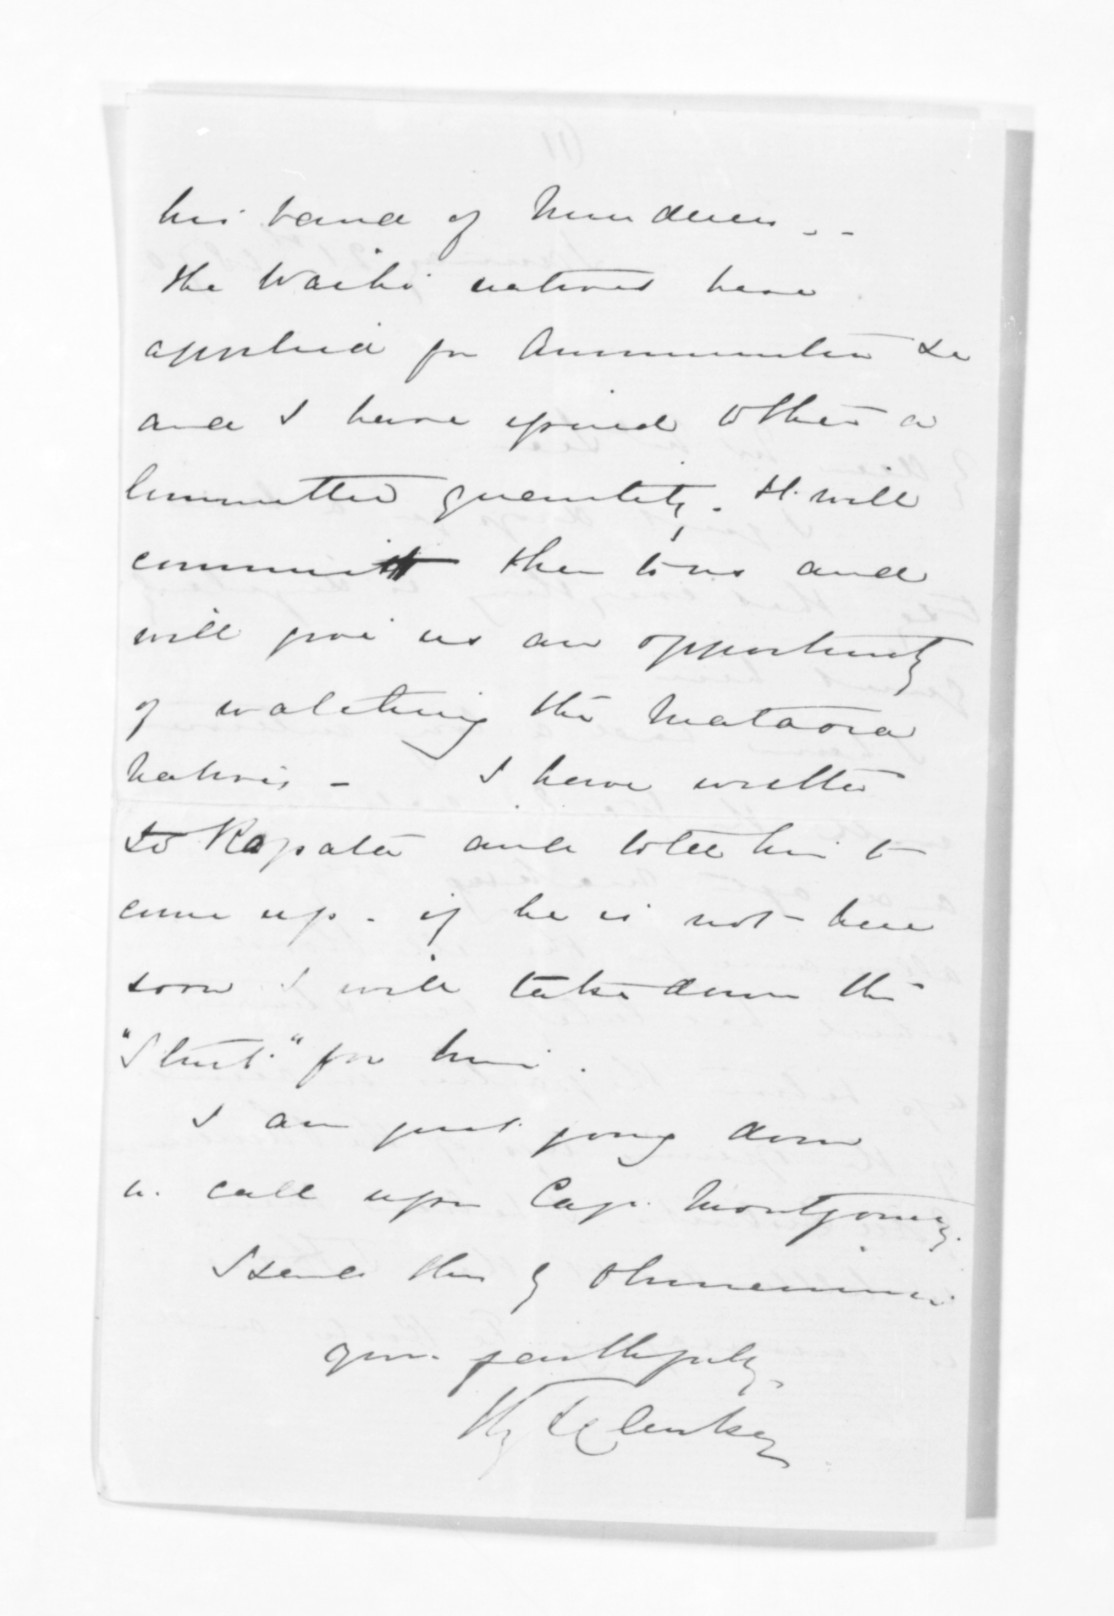 his band of Murderers - -
the Waihi natives have
applied for Ammunition &c
and I have given them a
limited quantity. It will
commit them to us and
will give us an opportunity
of watching the Mataora
Natives - I have written
to Ropata and told him to
come up - if he is not here
soon I will take down the
"Sturt" for him.
I am just going down
to call upon Capt. Montgomery.
I send this by Ohinemuri
yours faithfully
Hy T Clarke